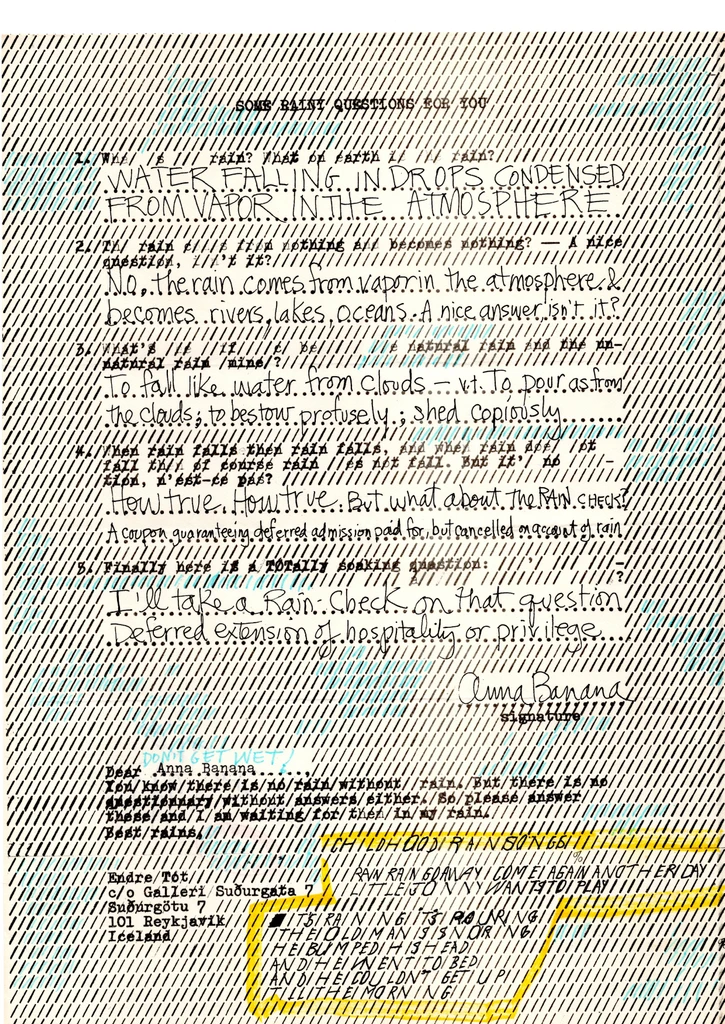 SOME RAINY QUESTIONS FOR YOU
1. rain? What on earth rain?
WATER FALLING IN DROPS CONDENSED
FROM VAPOR IN THE ATMOSPHERE
2. rain from nothing and becomes nothing? — A nice
question, it?
No, the rain comes from vapor in the atmosphere &
becomes rivers, lakes, oceans. A nice answer isn't it?
3. What's natural rain and the un-
natural rain /mine/?
To fall like water from clouds — v.t. To pour as from
the clouds; to bestow profusely; shed copiously
4. When rain falls then rain falls, and when rain
fall of course rain not fall. But no
tion, n'est-ce pas?
How true, How true. But what about the RAIN CHECK?
A coupon guaranteeing deferred admission paid for, but cancelled on account of rain
5. Finally here is a TÓTally soaking question:
?
I'll take a Rain-Check on that question
Deferred extension of hospitality or privilege
Anna Banana
signature
DON'T GET WET!
Dear Anna Banana.....,
You know there is no rain without rain. But there is no
questionnary without answers either. So please answer
these and I am waiting for them in my rain.
Best rains,
CHILDHOOD RAIN SONGS
RAIN RAIN GO AWAY COME AGAIN ANOTHER DAY
LITTLE JONNY WANTS TO PLAY
Endre Tót
c/o Galleri Suðurgata 7
Suðurgötu 7
101 Reykjavik
Iceland
ITS RAINING ITS POURING
THE OLD MAN IS SNORING
HE BUMPED HIS HEAD
AND HE WENT TO BED
AND HE COULDN'T GET UP
TILL THE MORNING